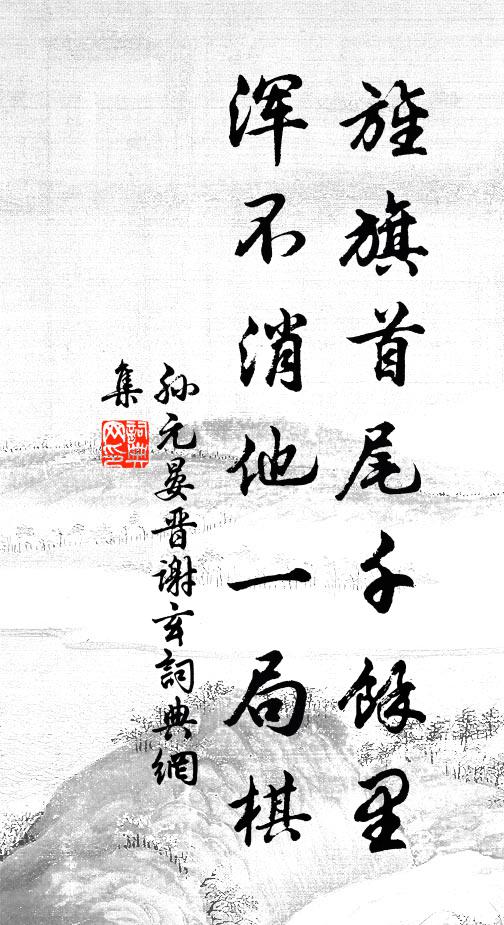 旌旗首尾千餘里
渾不消他一局棋
孙元晏晋谢玄詞典網
集